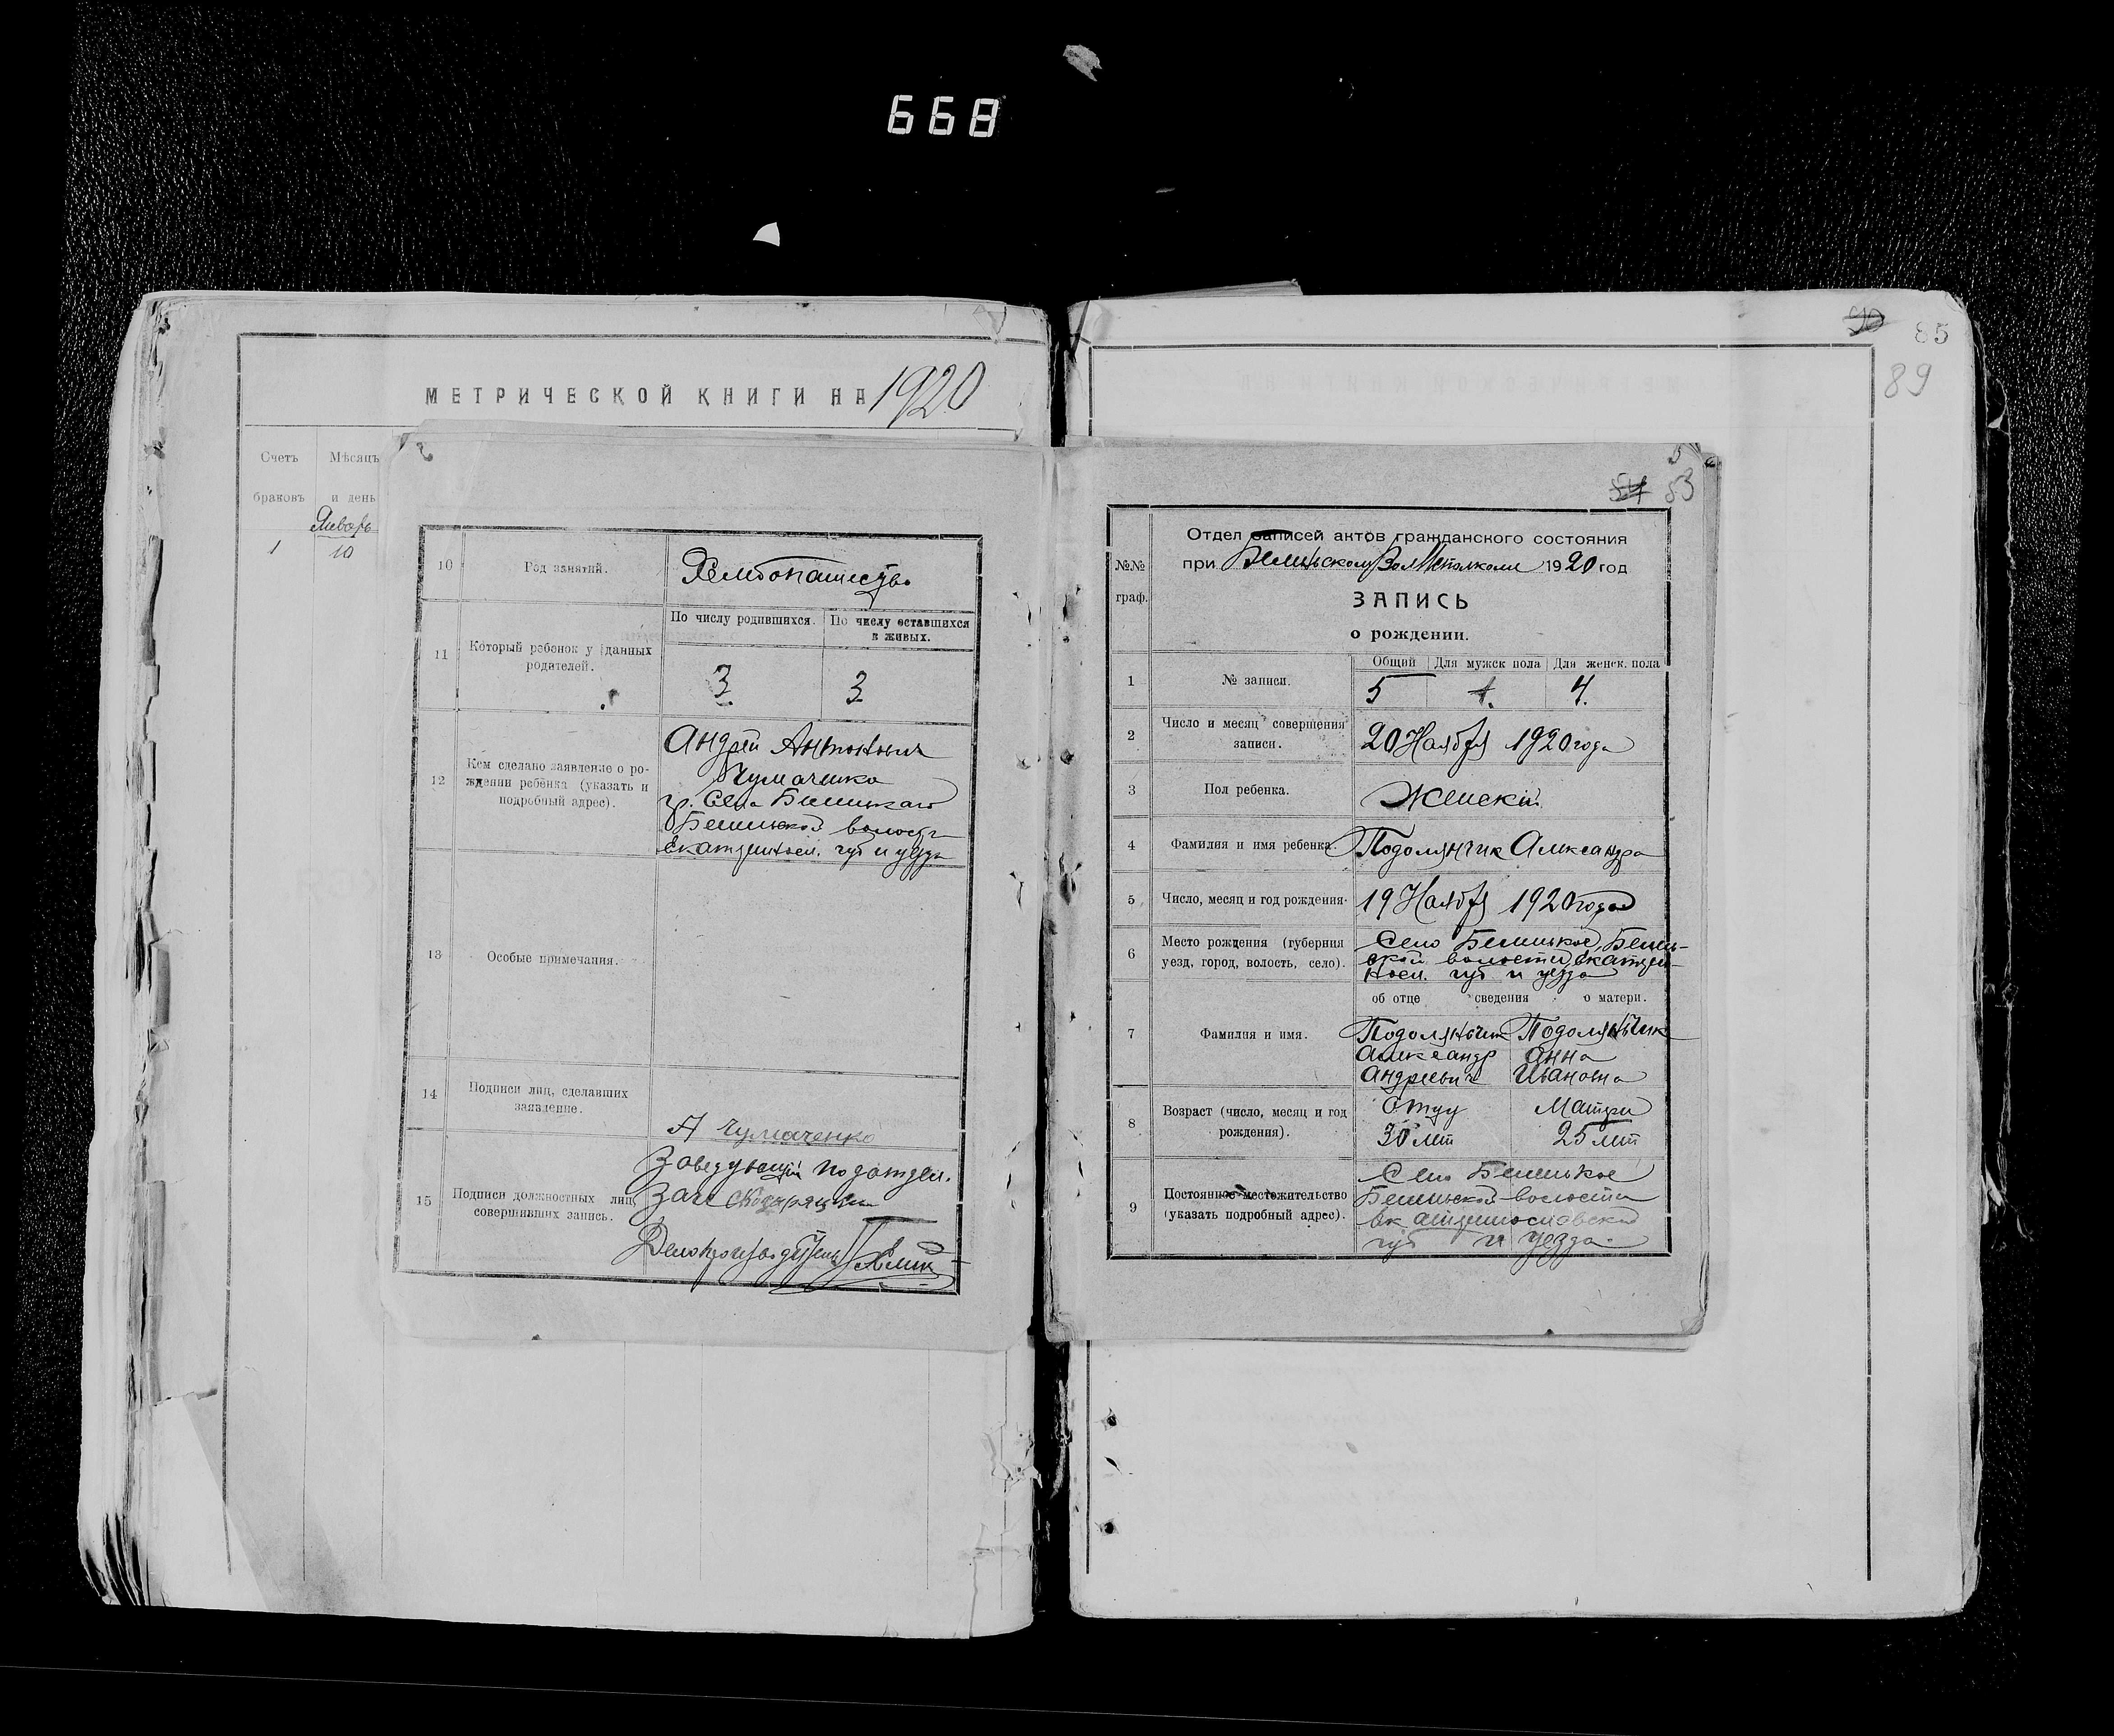 668
МЕТРИЧЕСКОЙ КНИГИ НА 1920
Счетъ
браковъ
Мѣсяцъ
и день
Январь
1
10
10
Род занятий.
Хлебопашество
11
Который ребенок у данных
родителей.
По числу родившихся.
По числу оставшихся
в живых.
3
3
12
Кем сделано заявление о ро-
ждении ребенка (указать и
подробный адрес).
Андрей Антонович
Чумаченко
гр. Села
волости
губ и уезда
13
Особые примечания.
14
Подписи лиц, сделавших
заявление.
А Чумаченко
15
Подписи должностных лиц,
совершивших запись.
Заведующий подотдел.
Делопроизводитель
90
85
89
5
54 53
№№
граф.
Отдел записей актов гражданского состояния
при 1920 год
ЗАПИСЬ
о рождении.
1
№ записи.
Общий
Для мужск пола
Для женск. пола
5
4.
2
Число и месяц совершения
записи.
20 Ноября 1920 года
3
Пол ребенка.
Женский
4
Фамилия и имя ребенка.
Подолянчик Александра
5
Число, месяц и год рождения.
19 Ноября 1920 года
6
Место рождения (губерния
уезд, город, волость, село).
Село
ской волости Екатерин-
губ и уезда
об отце сведения о матери.
7
Фамилия и имя.
Подоляньчик
Александр
Андреевич
Подоляньчик
Анна
Ивановна
8
Возраст (число, месяц и год
рождения).
Отцу
30 лет
Матери
25 лет
9
Постоянное местожительство
(указать подробный адрес).
Село
волости
Екатеринославской
губ и уезда.